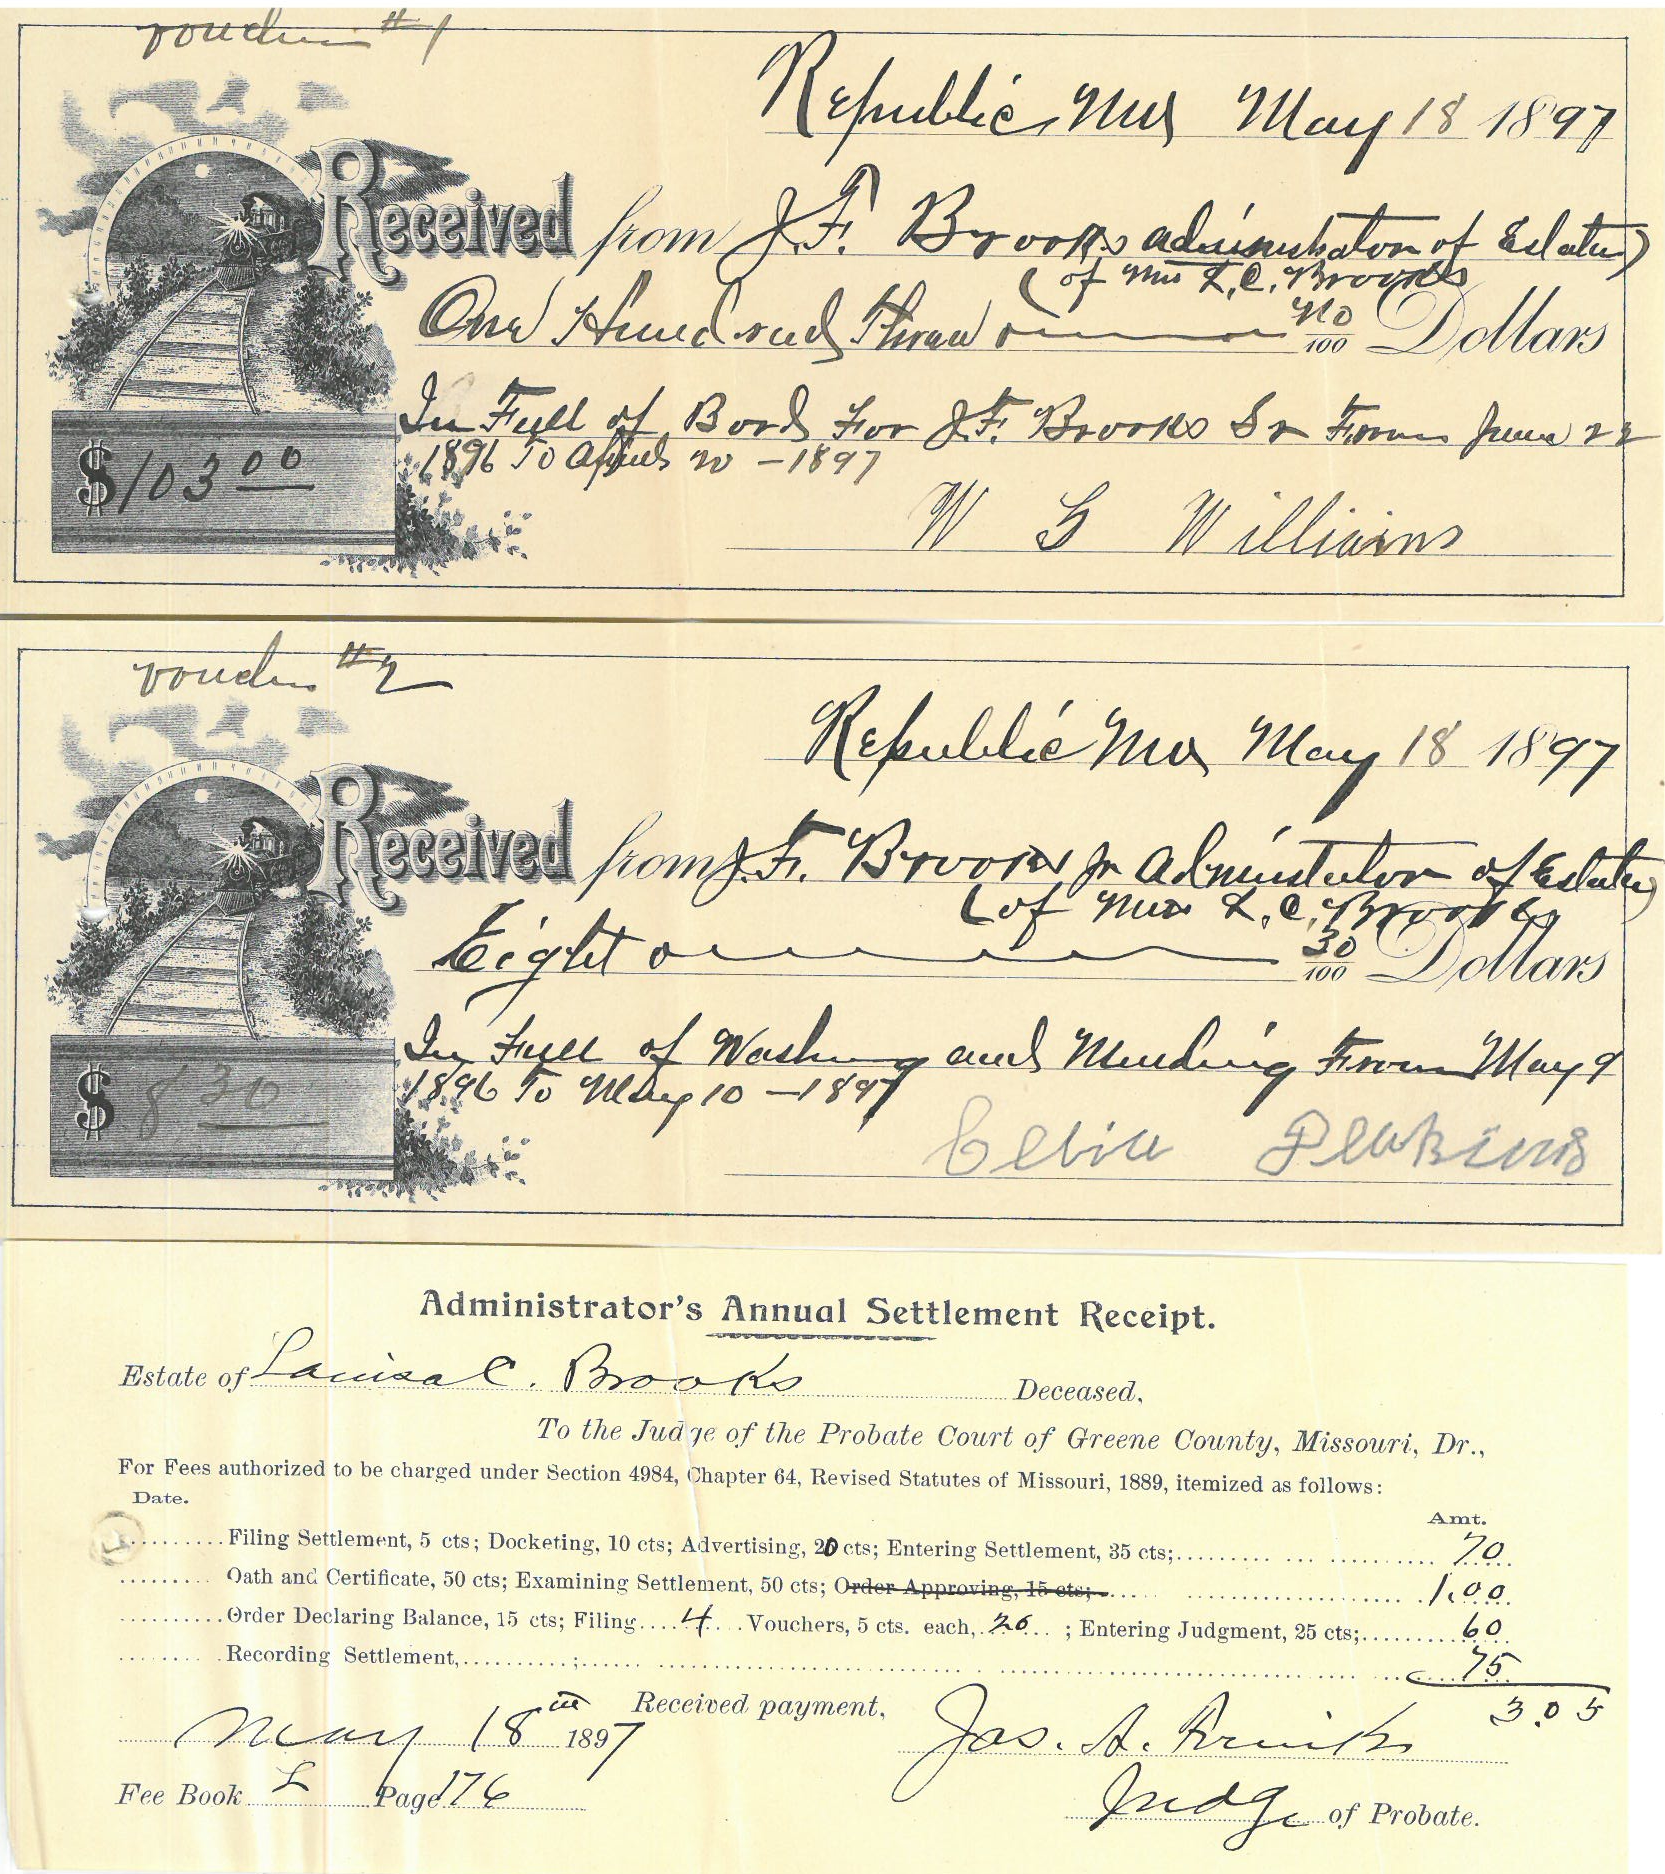 voucher #1
Republic Mo May 18 1897
Received from J. F. Brooks administrator of Estate
(of Mrs L. C. Brooks
One Hundred Three no/100 Dollars
In Full of Bord For J. F. Brooks Sr From June 22
$103 00
1896 To April 20 - 1897
W G Williams
voucher #2
Republic Mo May 18 1897
Received from J. F. Brooks Jr Adminstrator of Estate
(of Mrs L. C. Brooks
Eight 30/100 Dollars
In Full of Washing and Mending From May 9
1896 To May 10 - 1897
$ 8 30
Perkins
Administrator's Annual Settlement Receipt.
Estate of Louisa C. Brooks Deceased,
To the Judge of the Probate Court of Greene County, Missouri, Dr.,
For Fees authorized to be charged under Section 4984, Chapter 64, Revised Statutes of Missouri, 1889, itemized as follows:
Date.
Amt.
Filing Settlement, 5 cts; Docketing, 10 cts; Advertising, 20 cts; Entering Settlement, 35 cts; 70
Oath and Certificate, 50 cts; Examining Settlement, 50 cts; Order Approving, 15 cts; 1.00
Order Declaring Balance, 15 cts; Filing 4 Vouchers, 5 cts. each, 20 ; Entering Judgment, 25 cts; 60
Recording Settlement, ; 75
3.05
May 18th 1897 Received payment, Jas. A.
Fee Book L Page 176 Judge of Probate.